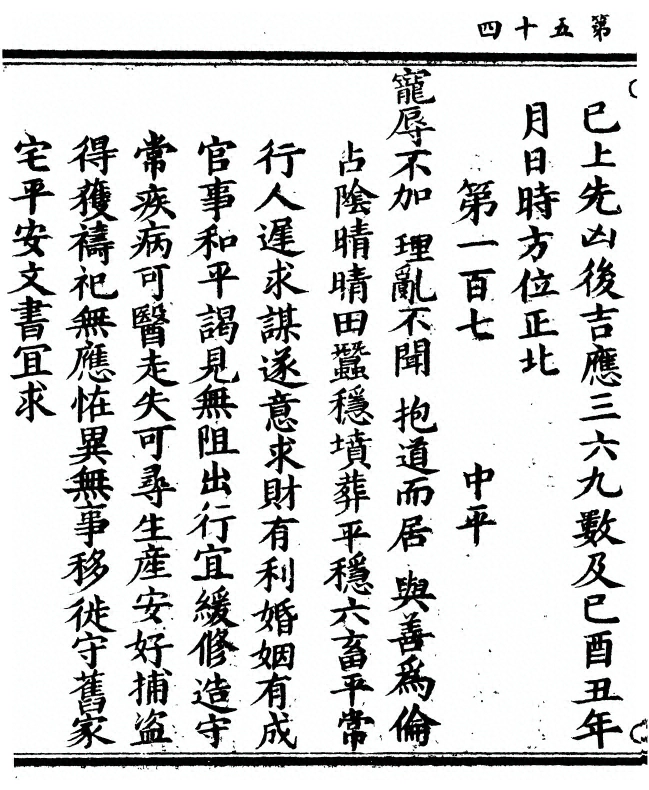 第五十四
已上先凶後吉應三六九數及巳酉丑年
月日時方位正北
第一百七 中平
寵辱不加 理亂不聞 抱道而居 與善為倫
占陰晴晴田蠶穩墳葬平穩六畜平常
行人遲求謀遂意求財有利婚姻有成
官事和平謁見無阻出行宜緩修造守
常疾病可醫走失可尋生產安好捕盜
得獲禱祀無應恠異無事移徙守舊家
宅平安文書宜求